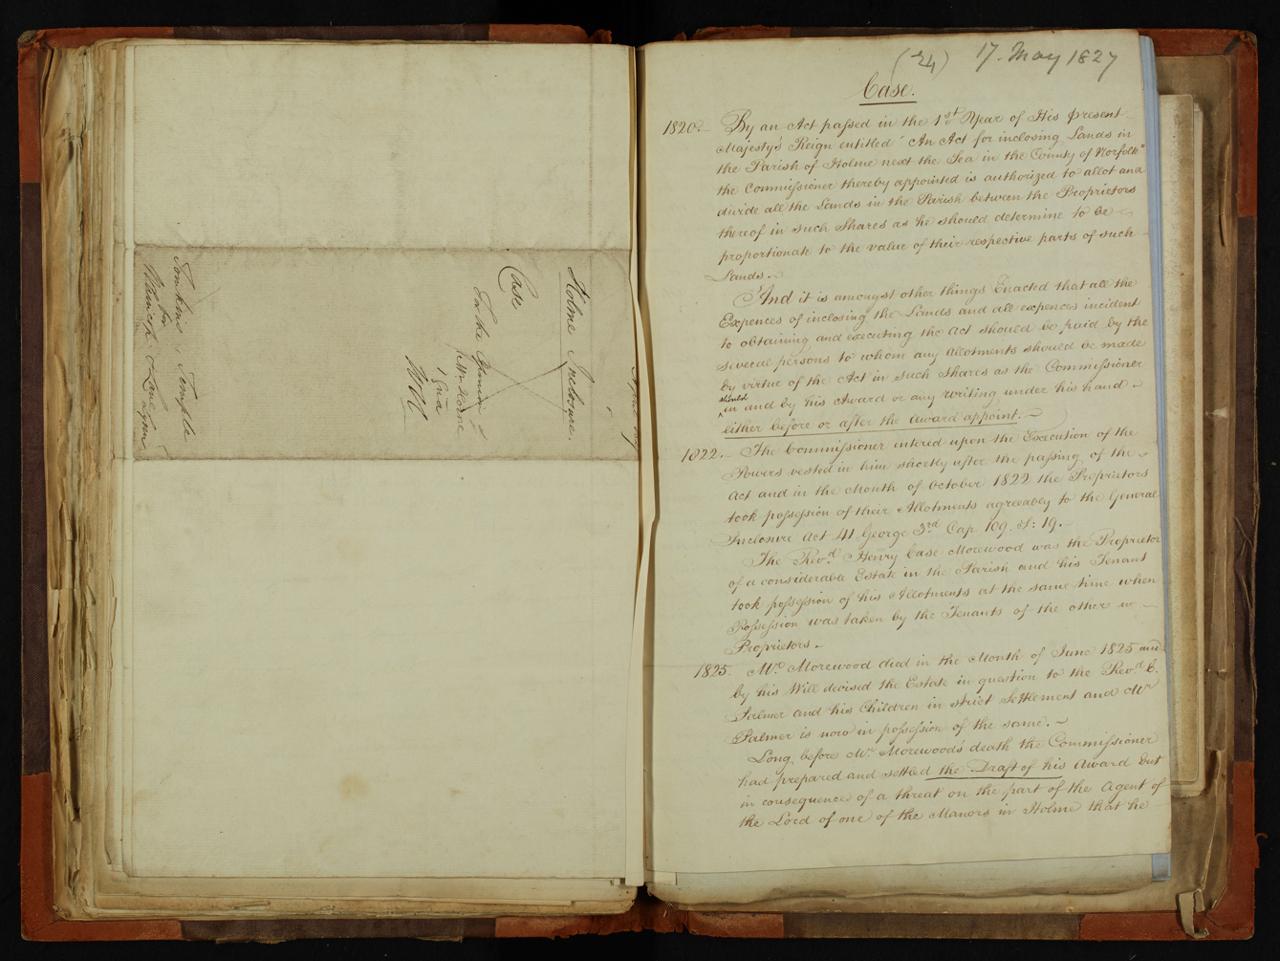 Holme Inclosure.
Case
For the Opinion of
Mr Horne
1 Gua
Tomkins, Temple
for
(24) 17. May 1827
Case.
1820. By an Act passed in the 1st Year of His present
Majesty's Reign entitled "An Act for inclosing Lands in
the Parish of Holme next the Sea in the County of Norfolk"
the Commissioner thereby appointed is authorized to allot and
divide all the Lands in the Parish between the Proprietors
thereof in such Shares as he should determine to be
proportionate to the value of their respective parts of such
Lands.
And it is amongst other things Enacted that all the
Expences of inclosing the Lands and all expences incident
to obtaining and executing the Act should be paid by the
several persons to whom any Allotments should be made
by virtue of the Act in such Shares as the Commissioner
should
in and by his Award or any writing under his hand
either before or after the Award appoint.
1822. The Commissioner entered upon the Execution of the
Powers vested in him shortly after the passing of the
Act and in the Month of October 1822 the Proprietors
took possession of their Allotments agreeably to the General
Inclosure Act 41 George 3rd Cap. 109. S: 19.
The Revd. Henry Case Morewood was the Proprietor
of a considerable Estate in the Parish and his Tenant
took possession of his Allotments at the same time when
Possession was taken by the Tenants of the other
Proprietors.
1825. Mr. Morewood died in the Month of June 1825 and
by his Will devised the Estate in question to the Revd. C.
Palmer and his Children in strict Settlement and Mr
Palmer is now in possession of the same.
Long before Mr. Morewood's death the Commissioner
had prepared and settled the Draft of his Award but
in consequence of a threat on the part of the Agent of
the Lord of one of the Manors in Holme that he